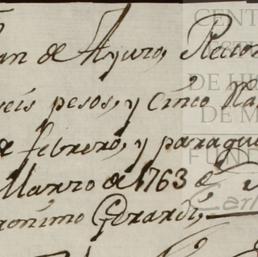 an de Ayuro, Recon
seis pesos, y Cinco Ra
de febrero, y para que
Marzo de 1763 @
ronimo Gerardi,
CENT
DE HI
DE M
FUN
Carl